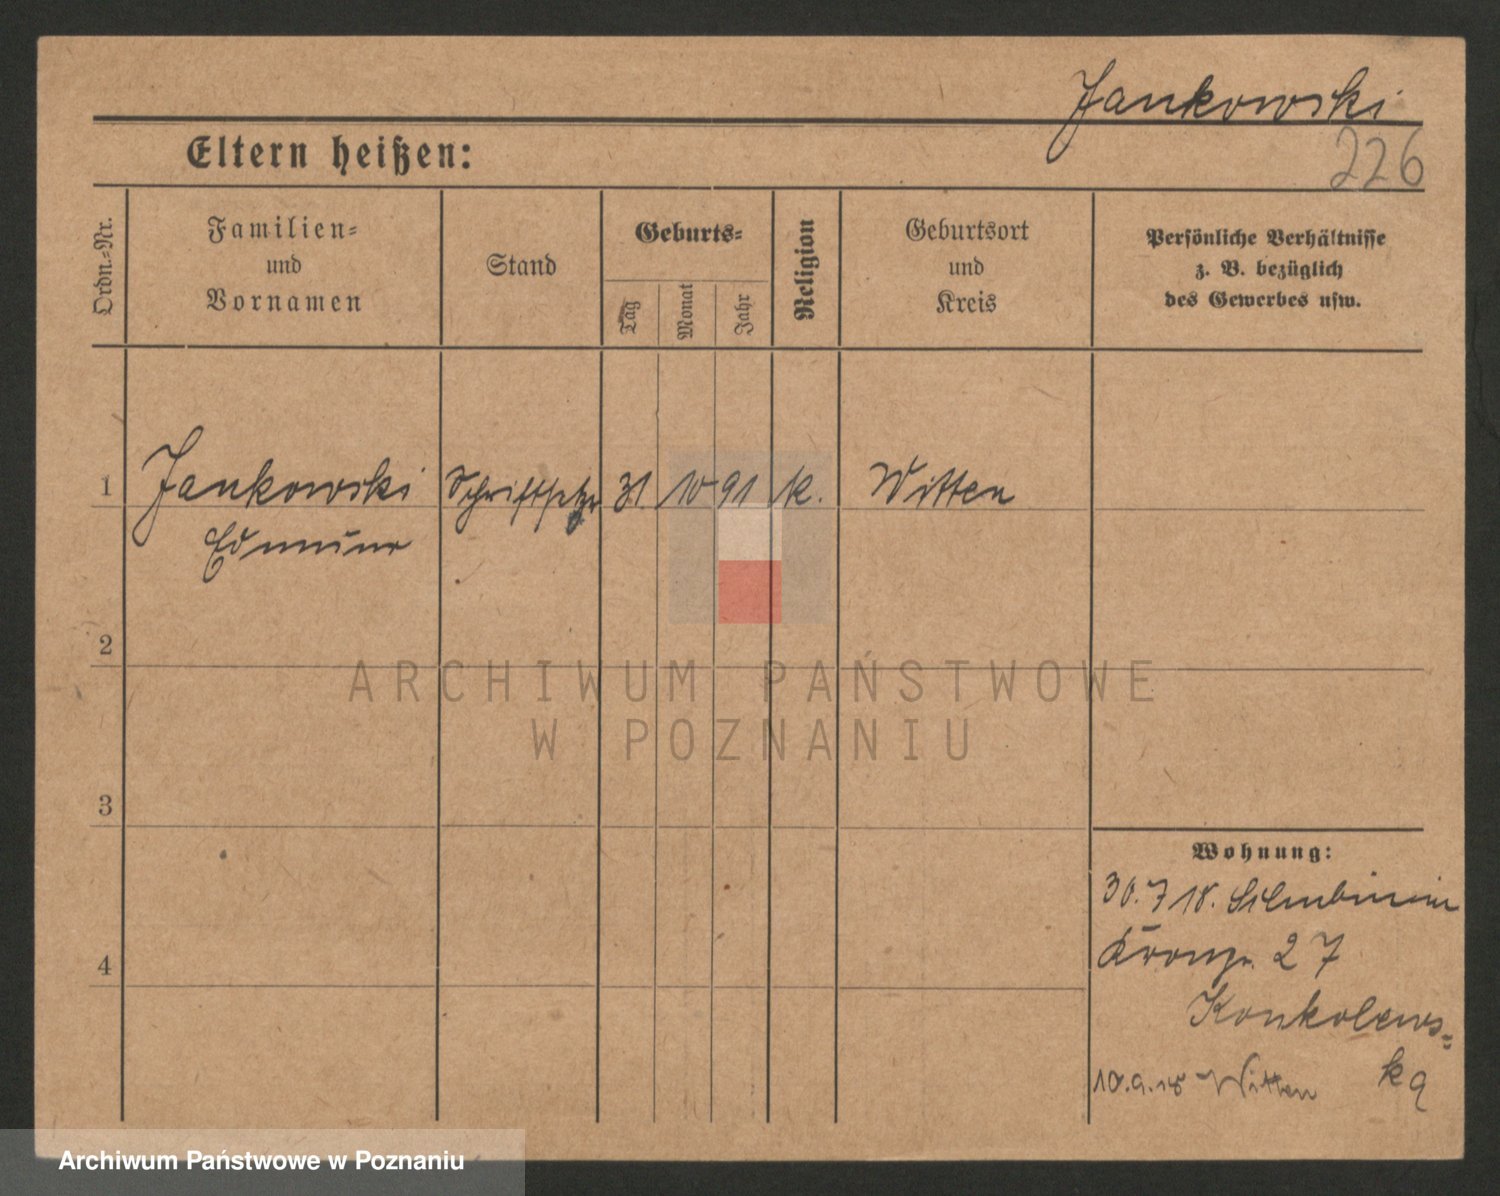 Jankowski
226
Eltern heißen:
Ordn.-Nr.
Familien-
und
Vornamen
Stand
Geburts-
Tag
Monat
Jahr
Religion
Geburtsort
und
Kreis
Persönliche Verhältnisse
z. B. bezüglich
des Gewerbes usw.
1 Jankowski Schriftsetzer 31 10 91 K. Witten
Edmund
2
3
4
Wohnung:
30. 7 18.
27
Konkolews-
ka
10.9.18 Witten
ARCHIWUM PAŃSTWOWE
W POZNANIU
Archiwum Państwowe w Poznaniu